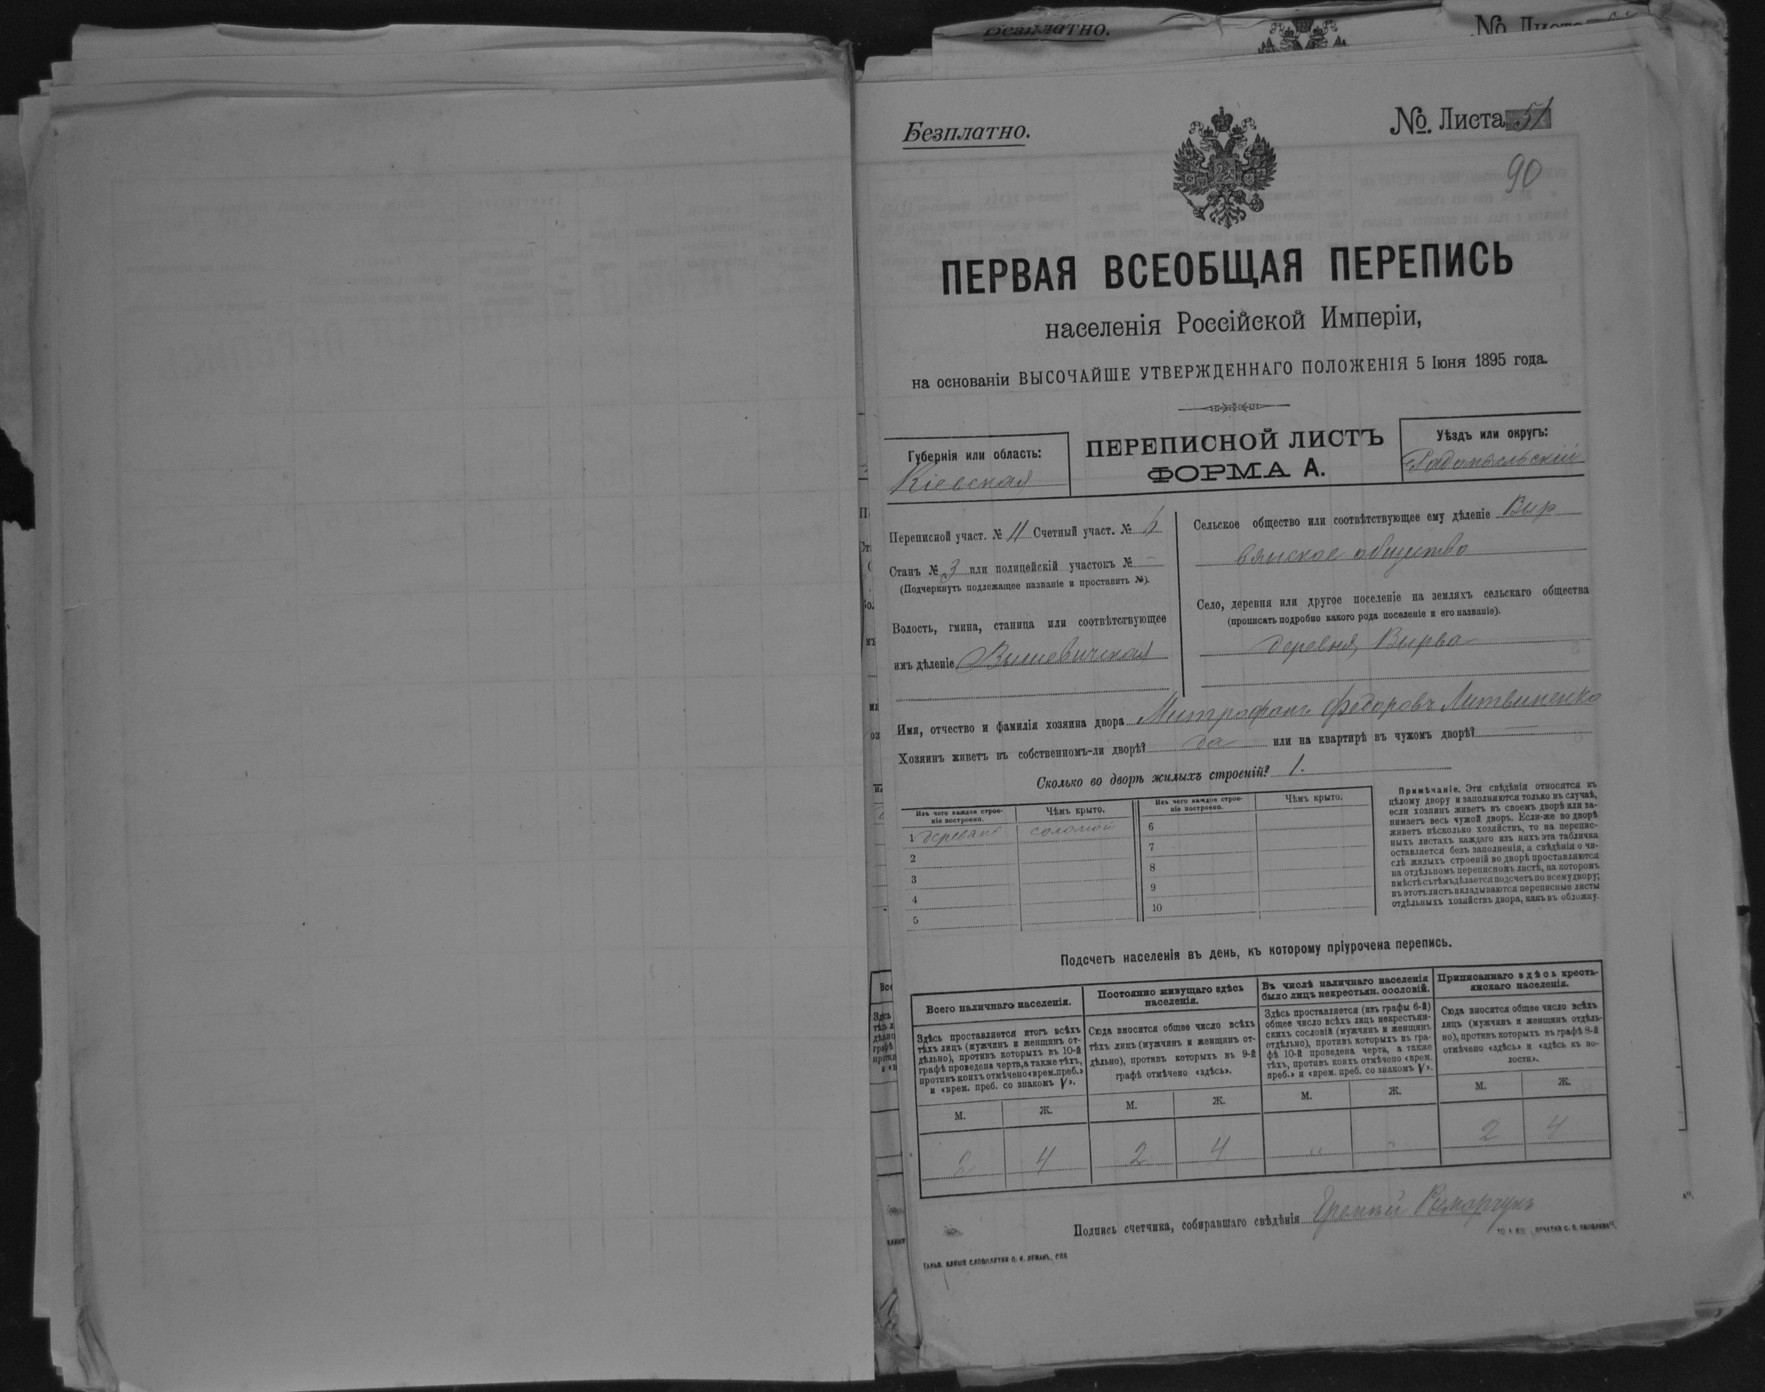 Безплатно.
№ Листа 51
90
ПЕРВАЯ ВСЕОБЩАЯ ПЕРЕПИСЬ
населенія Россійской Имперіи,
на основаніи ВЫСОЧАЙШЕ УТВЕРЖДЕННАГО ПОЛОЖЕНІЯ 5 Іюня 1895 года.
Губернія или область:
Кіевская
ПЕРЕПИСНОЙ ЛИСТЪ
ФОРМА А.
Уѣздъ или округъ:
Радомысльскій
Переписной участ. № 11 Счетный участ. №
Станъ № 3 или полицейскій участокъ № —
(Подчеркнуть подлежащее названіе и проставить №).
Волость, гмина, станица или соотвѣтствующее
имъ дѣленіе Вышевичская
Сельское общество или соотвѣтствующее ему дѣленіе Выр
вянское общество
Село, деревня или другое поселеніе на земляхъ сельскаго общества
(прописать подробно какого рода поселеніе и его названіе).
деревня Вырва
Имя, отчество и фамилія хозяина двора Митрофанъ Федоровъ Литвиненко
Хозяинъ живетъ въ собственномъ-ли дворѣ? да или на квартирѣ въ чужомъ дворѣ? —
Сколько во дворѣ жилыхъ строеній? 1.
Изъ чего каждое строе-
ніе построено.
Чѣмъ крыто.
Изъ чего каждое строе-
ніе построено.
Чѣмъ крыто.
1 соломой
2
3
4
5
6
7
8
9
10
Примѣчаніе. Эти свѣдѣнія относятся къ
цѣлому двору и заполняются только въ случаѣ,
если хозяинъ живетъ въ своемъ дворѣ или за-
нимаетъ весь чужой дворъ. Если-же во дворѣ
живетъ нѣсколько хозяйствъ, то на перепис-
ныхъ листахъ каждаго изъ нихъ эта табличка
оставляется безъ заполненія, а свѣдѣнія о чи-
слѣ жилыхъ строеній во дворѣ проставляются
на отдѣльномъ переписномъ листѣ, на которомъ
вмѣстѣ съ тѣмъ дѣлается подсчетъ по всему двору;
въ этотъ листъ вкладываются переписные листы
отдѣльныхъ хозяйствъ двора, какъ въ обложку.
Подсчетъ населенія въ день, къ которому пріурочена перепись.
Всего наличнаго населенія.
Здѣсь проставляется итогъ всѣхъ
тѣхъ лицъ (мужчинъ и женщинъ от-
дѣльно), противъ которыхъ въ 10-й
графѣ проведена черта, а также тѣхъ,
противъ коихъ отмѣчено «врем. преб.»
и «врем. преб. со знакомъ V».
Постоянно живущаго здѣсь
населенія.
Сюда вносится общее число всѣхъ
тѣхъ лицъ (мужчинъ и женщинъ от-
дѣльно), противъ которыхъ въ 9-й
графѣ отмѣчено «здѣсь».
Въ числѣ наличнаго населенія
было лицъ некрестьян. сословій.
Здѣсь проставляется (изъ графы 6-й)
общее число всѣхъ лицъ некрестьян-
скихъ сословій (мужчинъ и женщинъ
отдѣльно), противъ которыхъ въ гра-
фѣ 10-й проведена черта, а также
тѣхъ, противъ коихъ отмѣчено «врем.
преб.» и «врем. преб. со знакомъ V».
Приписаннаго здѣсь кресть-
янскаго населенія.
Сюда вносится общее число всѣхъ
лицъ (мужчинъ и женщинъ отдѣль-
но), противъ которыхъ въ графѣ 8-й
отмѣчено «здѣсь» и «здѣсь къ во-
лости».
М. Ж. М. Ж. М. Ж. М. Ж.
2 4 2 4 " " 2 4
Подпись счетчика, собиравшаго свѣдѣнія